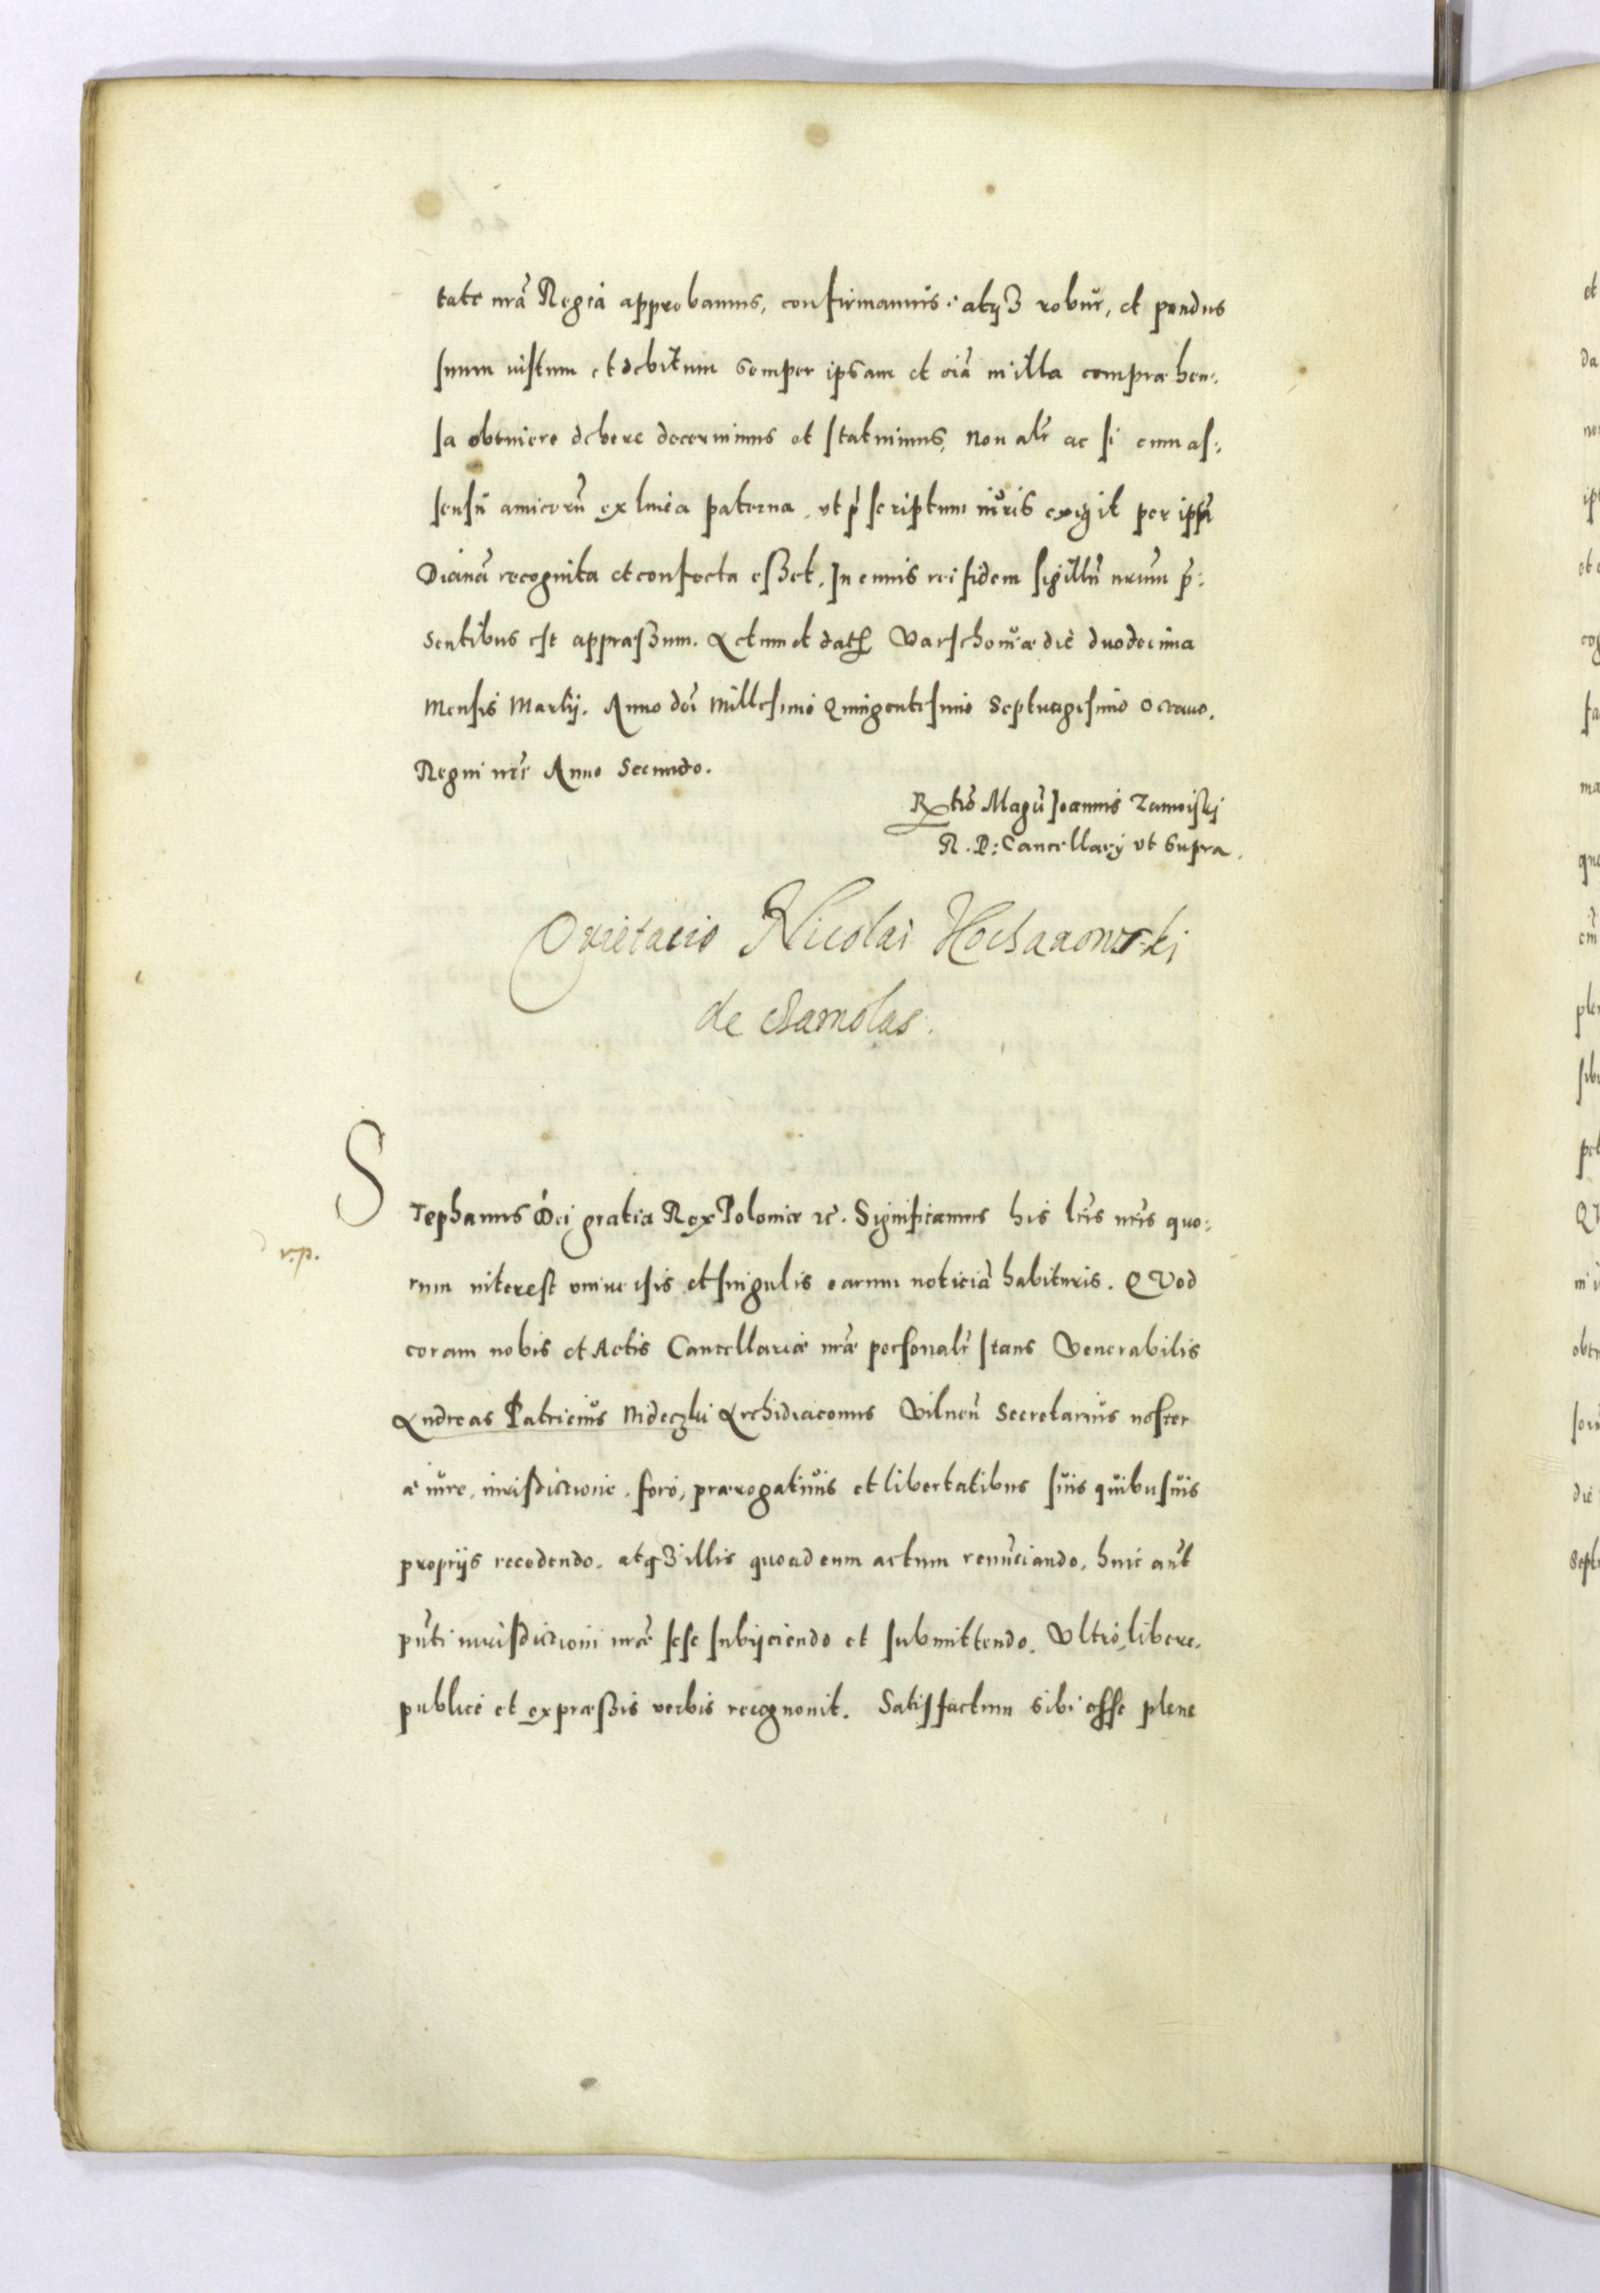 tate nrã Regia approbamus, confirmamus. atqȝ robur, et pondus
suum iustum et debitum semper ipsam et oĩa in illa compræhen:
sa obtinere debere decernimus et statuimus, Non alr̃ ac si cum as:
sensũ amicorũ ex linea paterna, ut p̃scriptum iuris exigit per ipsã
Dianã recognita et confecta esset. In cuius rei fidem sigillũ nrũm p̃:
sentibus est appræssum. Actum et dat̃ Varschouiæ die duodecima
Mensis Martij. Anno dñi Millesimo Quingentesimo Septuagesimo Octauo.
Regni nrĩ Anno Secundo.
Rtio Magci Joannis Zamoiski
R. P: Cancellarij ut supra.
Quietacio Nicolai
de
Stephanus Dei gratia Rex Poloniæ etc. Significamus his lrĩs nrĩs quo:
rum interest vniuersis et singulis earum noticiã habituris. QVod
coram nobis et Actis Cancellariæ nrãe personalr̃ stans Venerabilis
v.p.
Andreas Patricius Nideczki Archidiaconus Vilneñ Secretarius noster
a iure, iurisdictione, foro, prærogatiuis et libertatibus suis quibusuis
proprijs recedendo, atqȝ illis quoad eum actum renũciando, huic aũt
pñti iurisdictioni nrãe sese subijciendo et submittendo. Vltro, libere,
publice et expræssis verbis recognouit. Satisfactum sibi esse plene